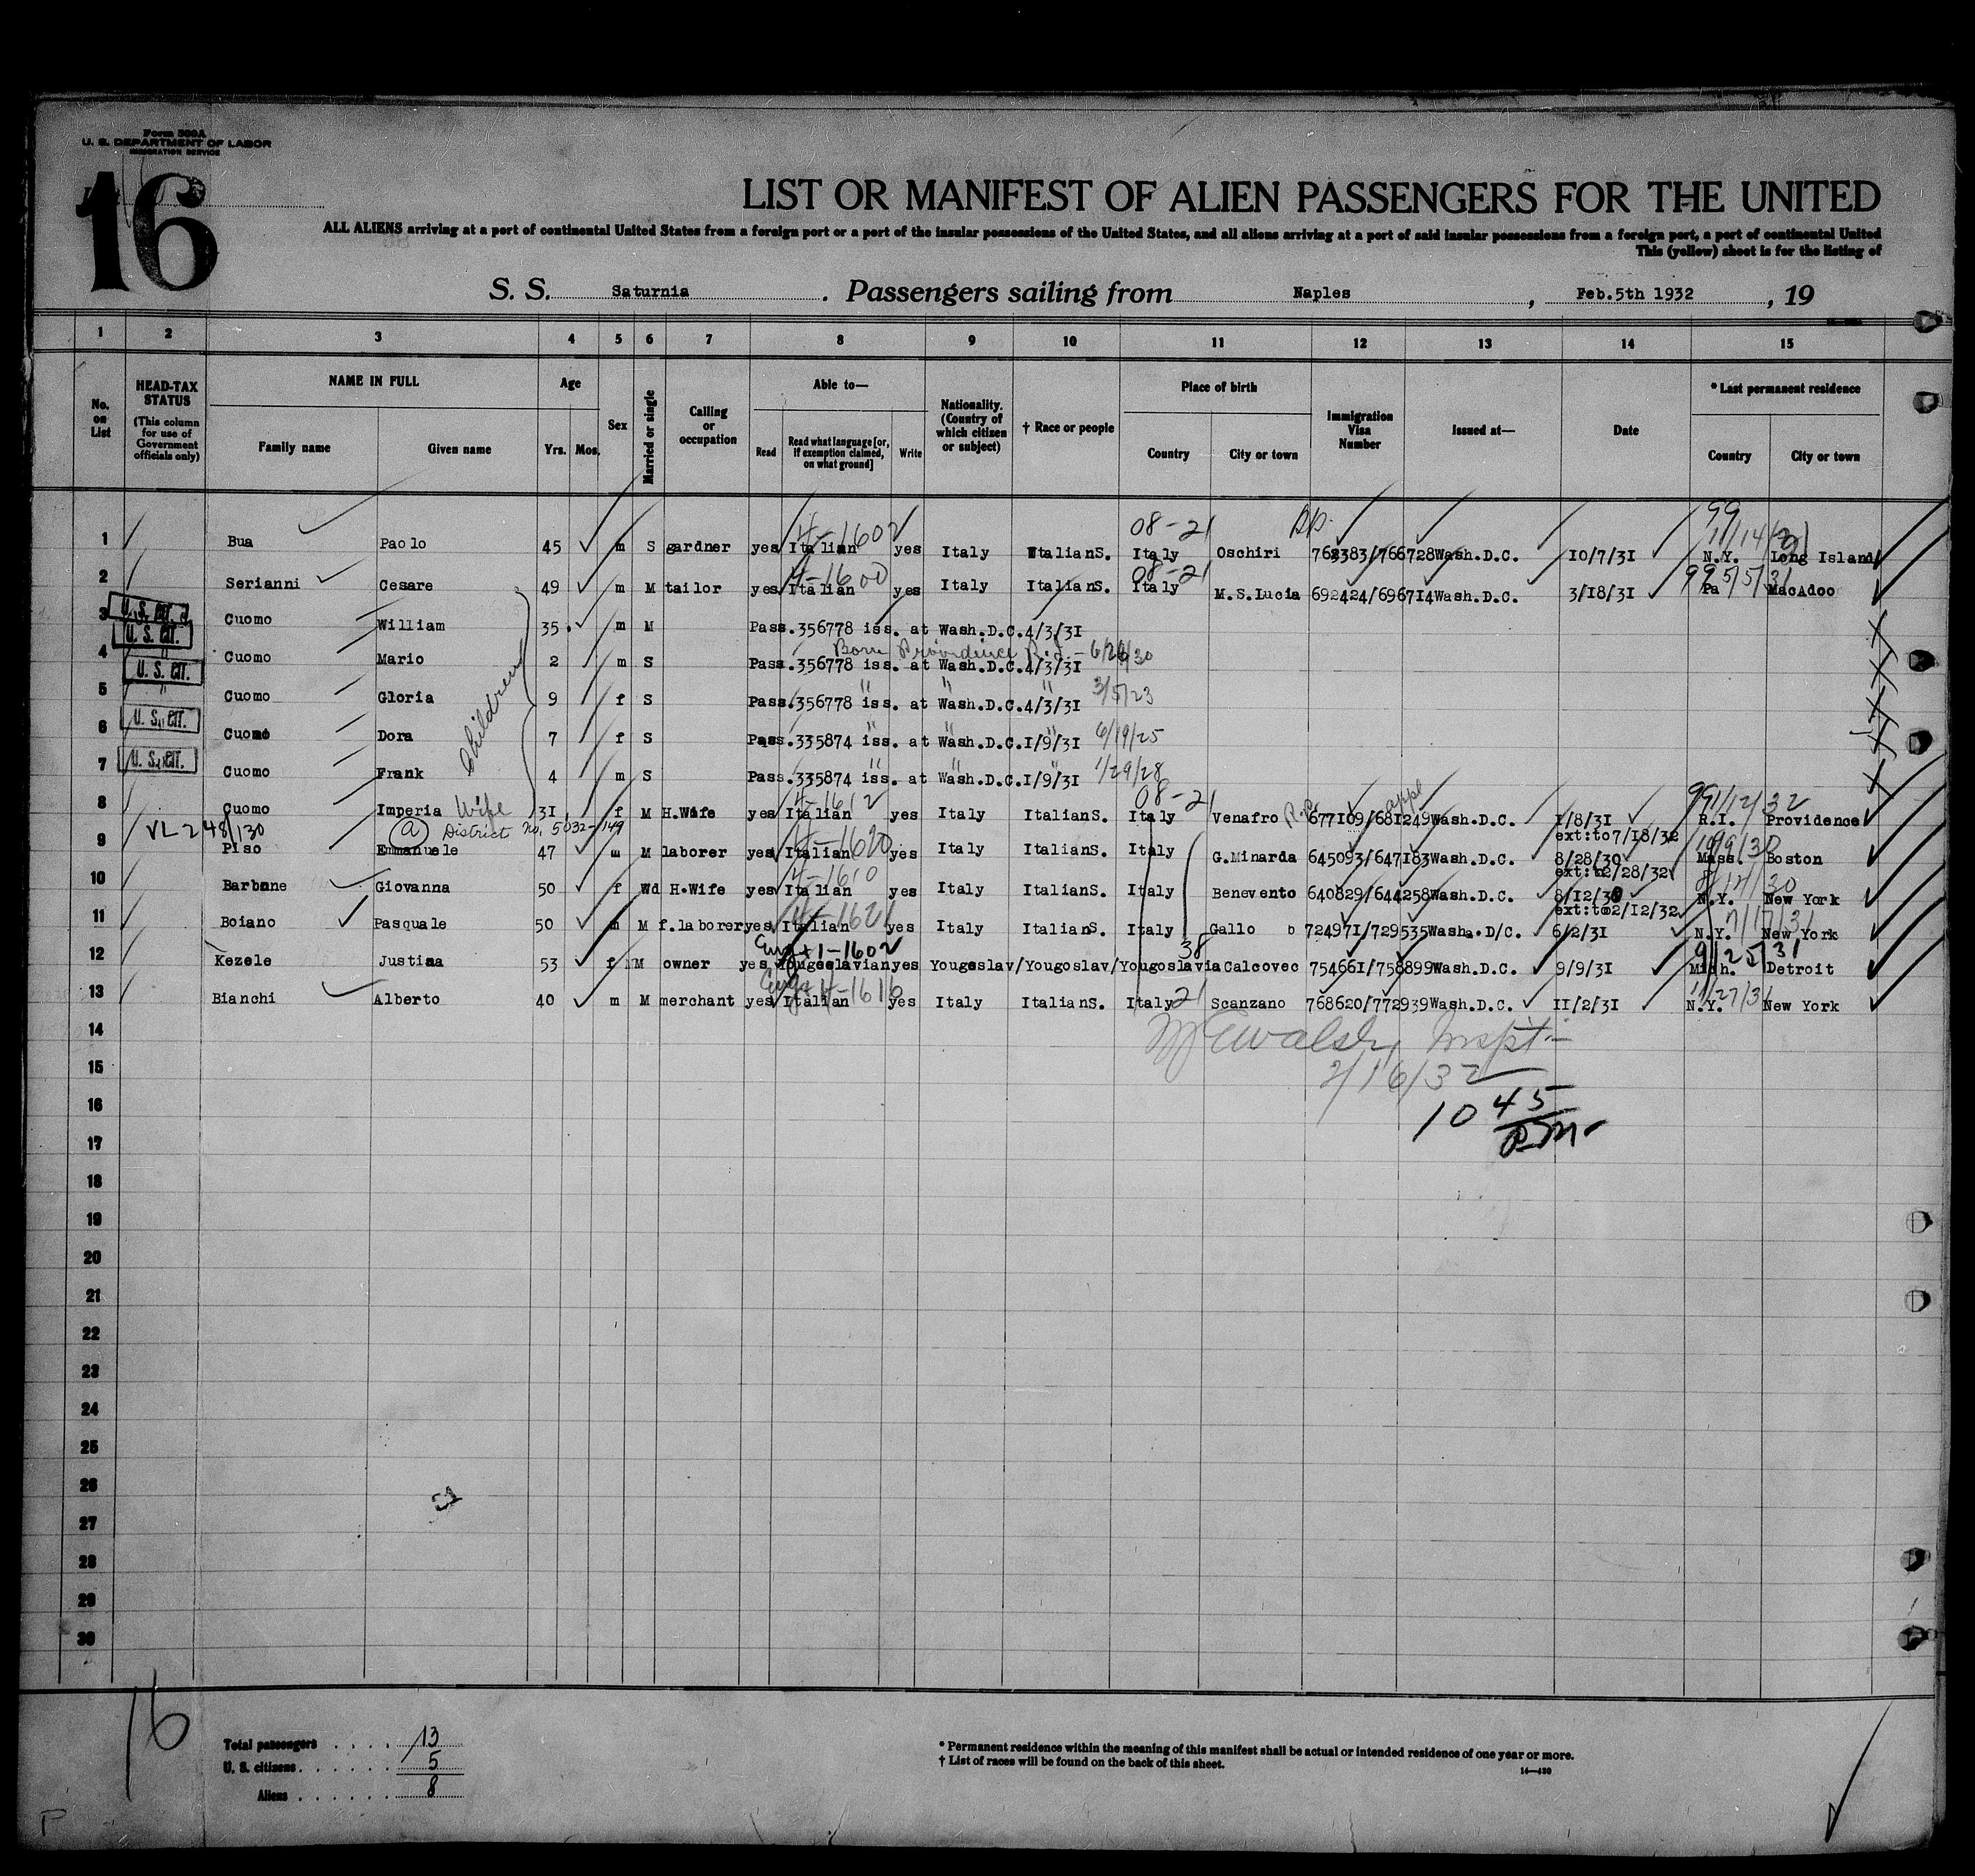 Form 500A
U. S. DEPARTMENT OF LABOR
IMMIGRATION SERVICE
16
LIST OR MANIFEST OF ALIEN PASSENGERS FOR THE UNITED
ALL ALIENS arriving at a port of continental United States from a foreign port or a port of the insular possessions of the United States, and all aliens arriving at a port of said insular possessions from a foreign port, a port of continental United
This (yellow) sheet is for the listing of
S. S. Saturnia . Passengers sailing from Naples , Feb.5th 1932 , 19
1 2 3 4 5 6 7 8 9 10 11 12 13 14 15
No. on List
HEAD-TAX STATUS (This column for use of Government officials only)
NAME IN FULL Family name Given name
Age Yrs. Mos.
Sex
Married or single
Calling or occupation
Able to— Read Read what language [or, if exemption claimed, on what ground] Write
Nationality. (Country of which citizen or subject)
† Race or people
Place of birth Country City or town
Immigration Visa Number
Issued at—
Date
* Last permanent residence Country City or town
08-21 99
4-1602 11/14/
1 Bua Paolo 45 m S gardner yes Italian yes Italy ItalianS. Italy Oschiri 762383/766728 Wash.D.C. 10/7/31 N.Y. Long Island
4-1600 08-21 99 5/5/31
2 Serianni Cesare 49 m M tailor yes Italian yes Italy ItalianS. Italy M.S.Lucia 692424/696714 Wash.D.C. 3/18/31 Pa MacAdoo
U. S. CIT.
3 Cuomo William 35 m M Pass.356778 iss. at Wash.D.C.4/3/31
U. S. CIT. Born Providence R.I. - 6/26/30
4 Cuomo Mario 2 m S Pass.356778 iss. at Wash.D.C.4/3/31
U. S. CIT. " " " 3/5/23
5 Cuomo Gloria 9 f S Pass.356778 iss. at Wash.D.C.4/3/31
U. S. CIT. " " " 6/19/25
6 Cuomo Dora 7 f S Pass.335874 iss. at Wash.D.C.1/9/31
U. S. CIT. " " " 1/29/28
7 Cuomo Frank 4 m S Pass.335874 iss. at Wash.D.C.1/9/31
Children
4-1612 08-21 appl 99 1/12/32
8 Cuomo Imperia Wife 31 f M H.Wife yes Italian yes Italy ItalianS. Italy Venafro 677109/681249 Wash.D.C. 1/8/31 R.I. Providence
VL 248/130 (a) District no. 5032-149 ext:to7/18/32
4-1620 10/9/30
9 Piso Emmanuele 47 m M laborer yes Italian yes Italy ItalianS. Italy G.Minarda 645093/647183 Wash.D.C. 8/28/30 Mass. Boston
ext:to2/28/32
4-1610 8/14/30
10 Barbone Giovanna 50 f Wd H.Wife yes Italian yes Italy ItalianS. Italy Benevento 640829/644258 Wash.D.C. 8/12/30 N.Y. New York
ext:to2/12/32
4-1621 7/17/31
11 Boiano Pasquale 50 m M f.laborer yes Italian yes Italy ItalianS. Italy Gallo 724971/729535 Wash.D/C. 6/2/31 N.Y. New York
Eng +1-1602 38 9/25/31
12 Kezele Justina 53 f M owner yes Yougoslavian yes Yougoslav/Yougoslav/Yougoslavia Calcovec 754661/758899 Wash.D.C. 9/9/31 Mich. Detroit
Eng 4-1616 21 11/27/31
13 Bianchi Alberto 40 m M merchant yes Italian yes Italy ItalianS. Italy Scanzano 768620/772939 Wash.D.C. 11/2/31 N.Y. New York
14
Walsh Inspt
15
2/16/32
16
10 45
17
18
19
20
21
22
23
24
25
26
27
28
29
30
16
Total passengers . . . . 13
U. S. citizens . . . . . . 5
Aliens . . . . . . 8
* Permanent residence within the meaning of this manifest shall be actual or intended residence of one year or more.
† List of races will be found on the back of this sheet.
14—430
P